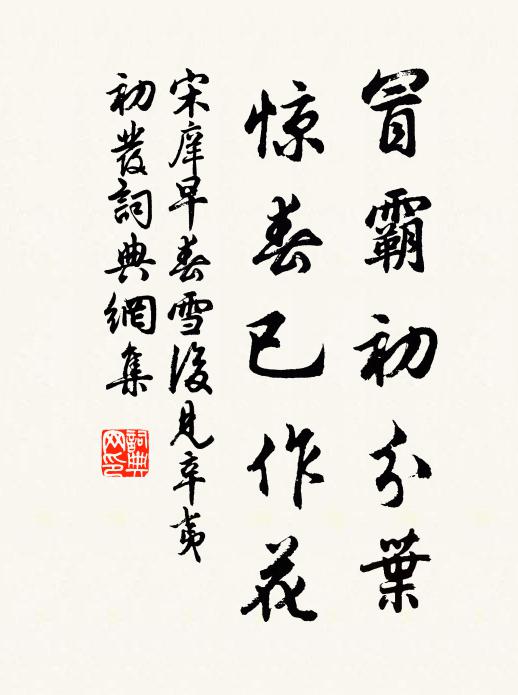 冒霸初分葉
惊春已作花
宋庠早春雪後見辛夷
初發詞典網集
詞典网印